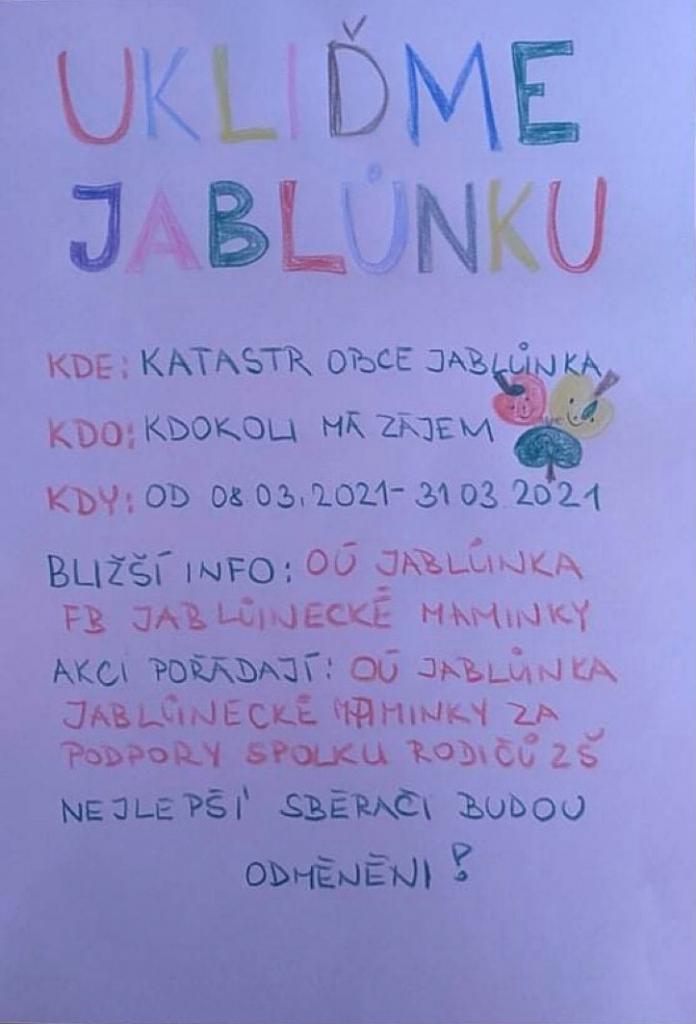 UKLIĎME
JABLŮNKU
KDE: KATASTR OBCE JABLŮNKA
KDO: KDOKOLI MÁ ZÁJEM
KDY: OD 08.03.2021-31.03.2021
BLIŽŠÍ INFO: OÚ JABLŮNKA
FB JABLŮNECKÉ MAMINKY
AKCI POŘÁDAJÍ: OÚ JABLŮNKA
JABLŮNECKÉ MAMINKY ZA
PODPORY SPOLKU RODIČŮ ZŠ
NEJLEPŠÍ SBĚRAČI BUDOU
ODMĚNĚNI!